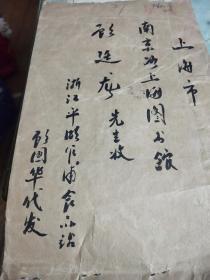 上海市
南京路上海图书館
顾廷龙 先生收
浙江平湖乍浦食品站
顾国华代发